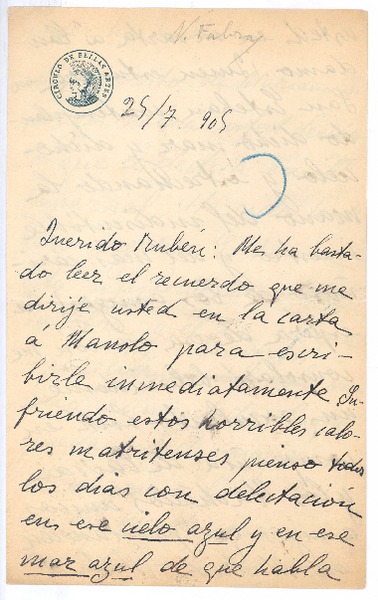 N. Fabra
CIRCULO DE BELLAS ARTES
25/7 905
Querido Rubén: Me ha basta-
do leer el recuerdo que me
dirije usted en la carta
á Manolo para escri-
birle inmediatamente Su-
friendo estos horribles calo-
res matritenses pienso todos
los dias con delectacion
en ese cielo azul y en ese
mar azul de que habla